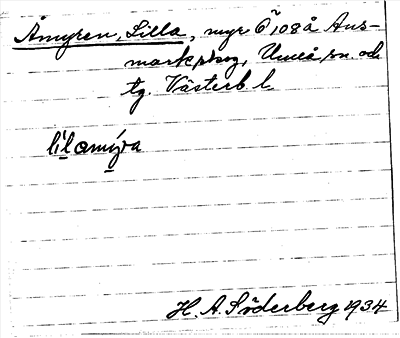 Åmyren, Lilla, myr Ö 108å Aus-
markskog, Umeå sn. och
tg. Västerb. l.
lilamýra
H. A. Söderberg 1934